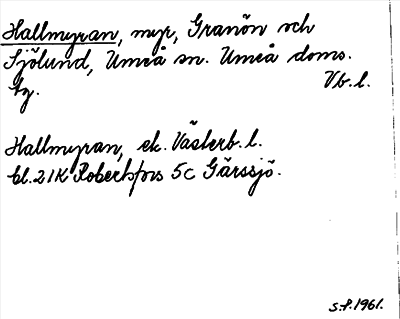 Hallmyran, myr, Granön och
Sjölund, Umeå sn. Umeå doms.
tg. Vb.l.
Hallmyran, ek. Västerb. l.
bl. 21K Robertsfors 5c Gärssjö.
S.P. 1961.